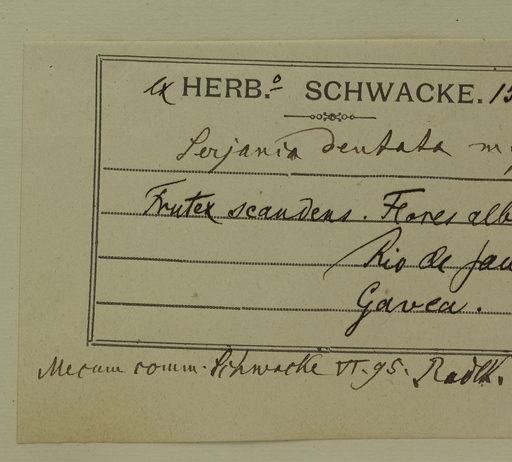 ex HERB.º SCHWACKE. 15
Serjania dentata m
Frutex scandens. Flores alb
Rio de Jan
Gavea.
Mecum comm. Schwacke VI. 95. Radlk.